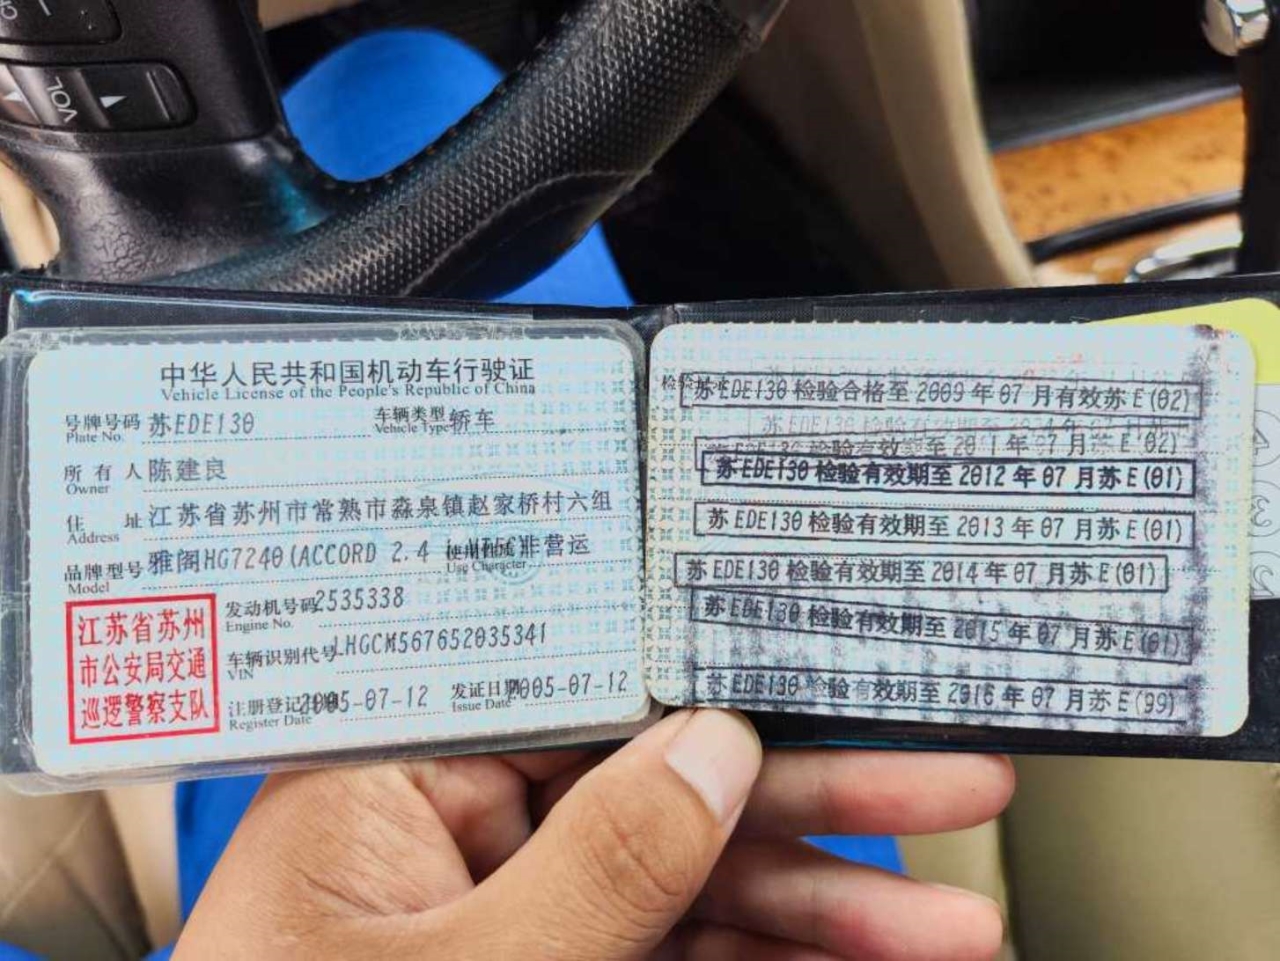 VOL
中华人民共和国机动车行驶证
Vehicle License of the People's Republic of China
号牌号码 苏EDE130 车辆类型 轿车
Plate No. Vehicle Type
所有人 陈建良
Owner
住址 江苏省苏州市常熟市淼泉镇赵家桥村六组
Address
品牌型号 雅阁HG7240(ACCORD 2.4 非营运
Model Use Character
江苏省苏州
市公安局交通
巡逻警察支队
发动机号码 2535338
Engine No.
车辆识别代号 LHGCM567652035341
VIN
注册登记 2005-07-12 发证日期 2005-07-12
Register Date Issue Date
苏EDE130 检验合格至 2009 年 07 月有效苏E(02)
苏EDE130 检验有效期至 2011年 07 月苏E(02)
苏EDE130 检验有效期至 2012 年 07 月苏E(01)
苏EDE130 检验有效期至 2013 年 07 月苏E(01)
苏EDE130 检验有效期至 2014 年 07 月苏E(01)
苏EDE130 检验有效期至 2015 年 07 月苏E(01)
苏EDE130 检验有效期至 2016 年 07 月苏E(99)